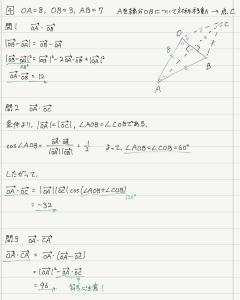 例 OA=8, OB=3, AB=7 Aを線分OBについて対称移動 → 点C
問1 OA・OB
|OB-OA| = OB-OA
|OB-OA|² = |OB|²-2OA・OB+|OA|²
OA・OB = 12
問2 OA・OC
条件より、|OA|=|OC|, ∠AOB=∠COBである。
cos∠AOB = OA・OB / |OA||OB| = 1/2 よって、∠AOB=∠COB=60°
したがって、
OA・OC = |OA||OC|cos(∠AOB+∠COB)
120°
= -32
問3 OA・CA
OA・CA = OA・(OA-OC)
= |OA|²-OA・OC
= 96 符号に注意!
O
C
B
A
8
3
7